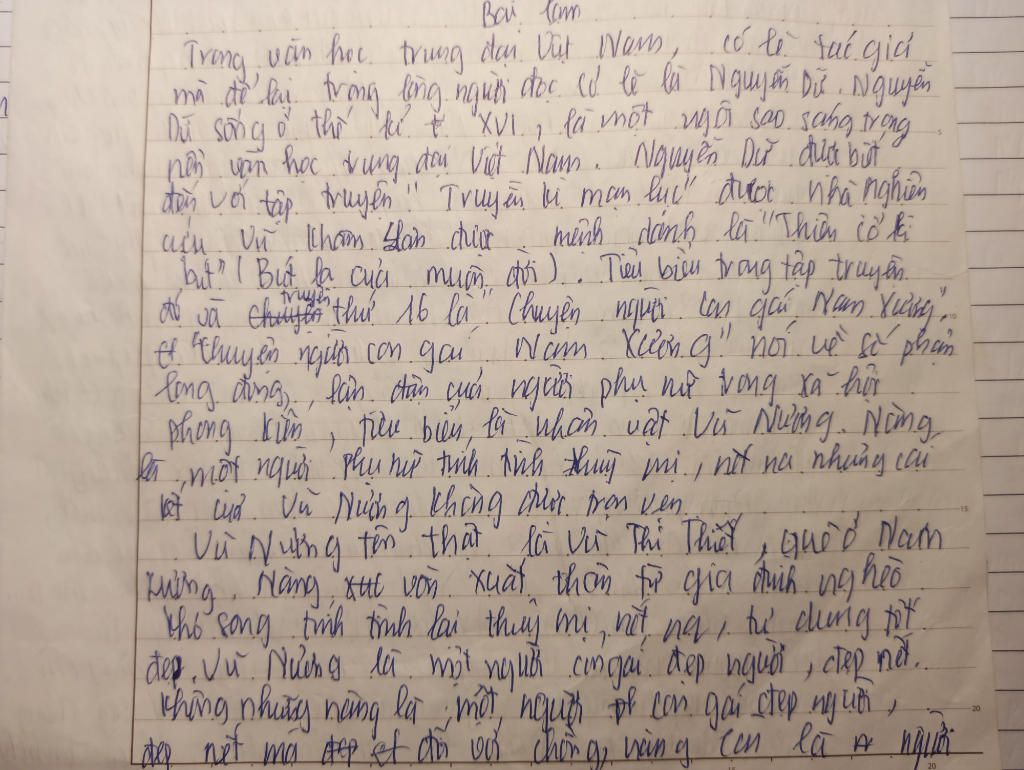 Bài làm
Trong văn học trung đại Việt Nam, có lẽ tác giả
mà để lại trong lòng người đọc có lẽ là Nguyễn Dữ. Nguyễn
Dữ sống ở thế kỉ XVI, là một ngôi sao sáng trong
nền văn học trung đại Việt Nam. Nguyễn Dữ được biết
đến với tập truyện "Truyền kì mạn lục" được nhà nghiên
cứu Vũ Khâm Lân được mệnh danh là "Thiên cổ kì
bút" (Bút lạ của muôn đời). Tiêu biểu trong tập truyện
đó và truyện thứ 16 là "Chuyện người con gái Nam Xương".
"Chuyện người con gái Nam Xương" nói về số phận
long đong, lận đận của người phụ nữ trong xã hội
phong kiến, tiêu biểu, là nhân vật Vũ Nương. Nàng
là một người phụ nữ tính tình thuỳ mị, nết na nhưng cái
kết của Vũ Nương không được trọn vẹn
Vũ Nương tên thật là Vũ Thị Thiết, quê ở Nam
Xương. Nàng vốn xuất thân từ gia đình nghèo
khó song tính tình lại thuỳ mị, nết na, tư dung tốt
đẹp. Vũ Nương là một người con gái đẹp người, đẹp nết.
Không những nàng là một người con gái đẹp người,
đẹp nết mà đối với chồng, nàng còn là người